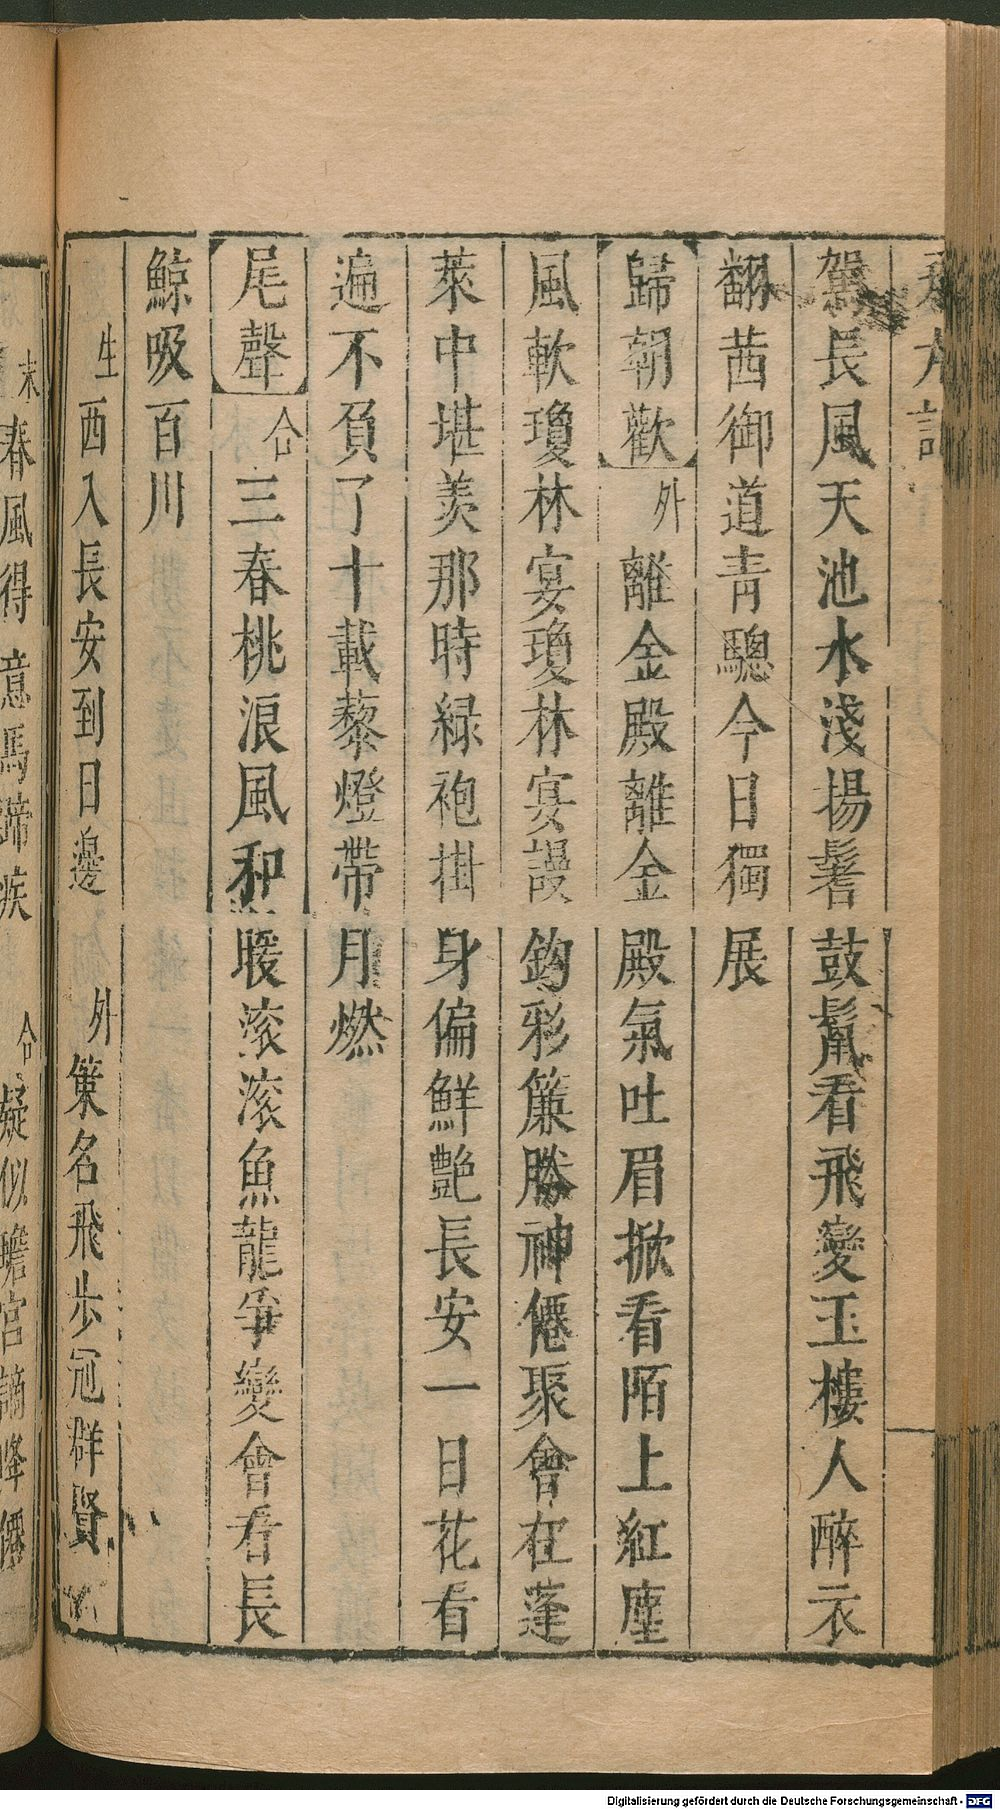 記
駕長風天池水淺揚鬐鼓鬣看飛變玉樓人醉衣
翻茜御道青驄今日獨展
歸朝歡 外 離金殿離金殿氣吐眉掀看陌上紅塵
風軟瓊林宴瓊林宴謾鈎彩簾勝神僊聚會在蓬
萊中堪羡那時緑袍掛身偏鮮艶長安一日花看
遍不負了十載藜燈帶月燃
尾聲 合 三春桃浪風和暖滚滚魚龍爭變會看長
鯨吸百川
生 西入長安到日邊 外 策名飛步冠群賢
末 春風得意馬蹄疾 合 疑似蟾宫謫降僊
Digitalisierung gefördert durch die Deutsche Forschungsgemeinschaft - DFG